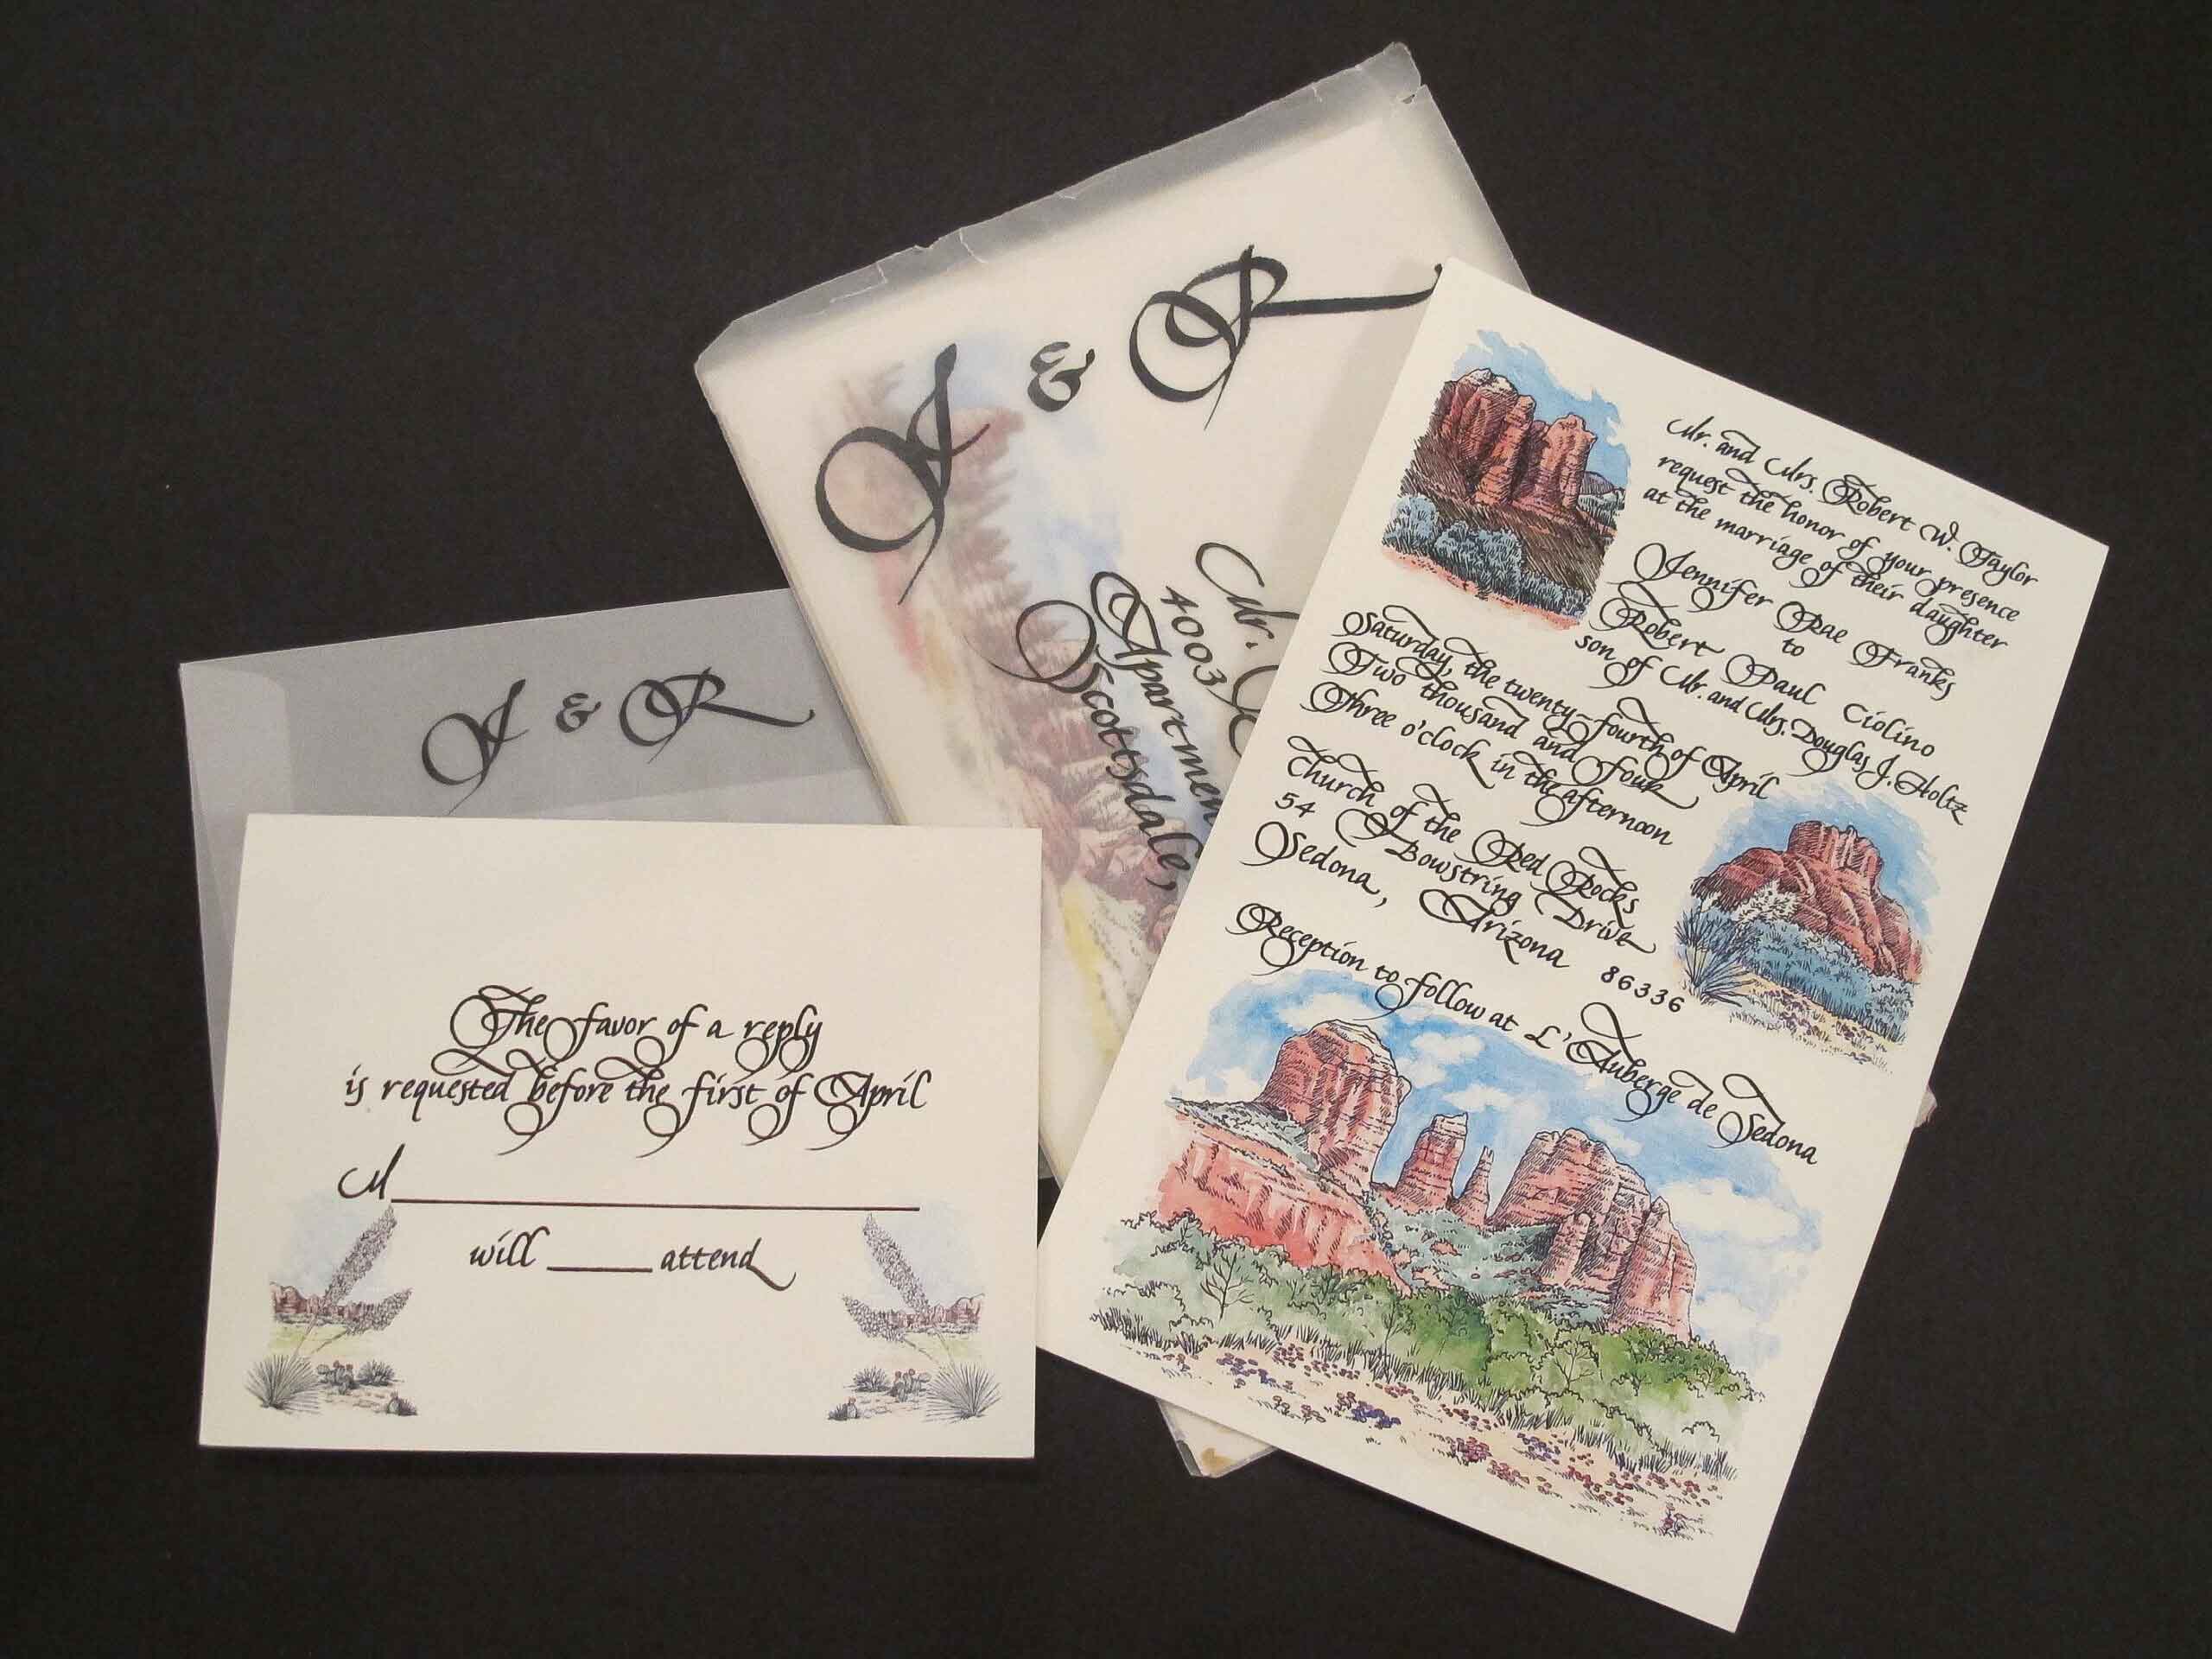 J & R
Mr.
4003
Apartmen
Scottsdale,
J & R
The favor of a reply
is requested before the first of April
M
will ____ attend
Mr. and Mrs. Robert W. Taylor
request the honor of your presence
at the marriage of their daughter
Jennifer Rae Franks
to
Robert Paul Ciolino
son of Mr. and Mrs. Douglas J. Holtz
Saturday, the twenty-fourth of April
Two thousand and Four
Three o'clock in the afternoon
Church of the Red Rocks
54 Bowstring Drive
Sedona, Arizona 86336
Reception to follow at L'Auberge de Sedona